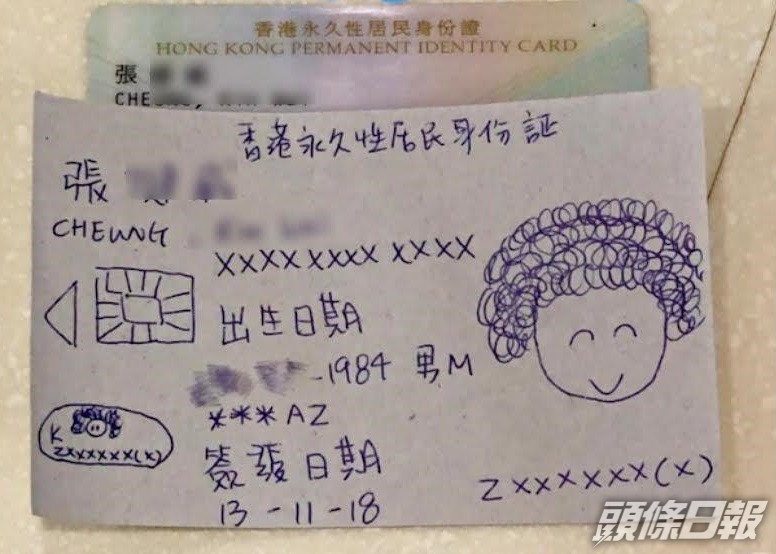 香港永久性居民身份證
HONG KONG PERMANENT IDENTITY CARD
張
香港永久性居民身份証
張
CHEUNG,
XXXX XXXX XXXX
出生日期
-1984 男M
***AZ
簽發日期
13-11-18
K
ZXXXXXX(X)
ZXXXXXX(X)
頭條日報